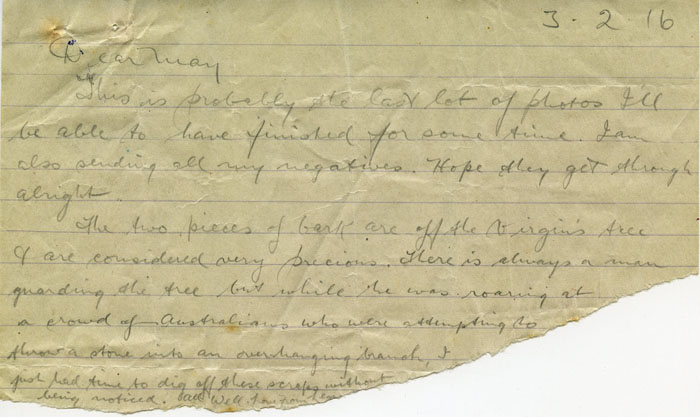 3 - 2 16
Dear May
This is probably the last lot of photos I'll
be able to have finished for some time. I am
also sending all my negatives. Hope they get through
alright.
The two pieces of bark are off the Virgin's tree
& are considered very precious. There is always a man
guarding the tree but while he was roaring at
a crowd of Australians who were attempting to
throw a stone into an overhanging branch, I
just had time to dig off these scraps without
being noticed. All well.